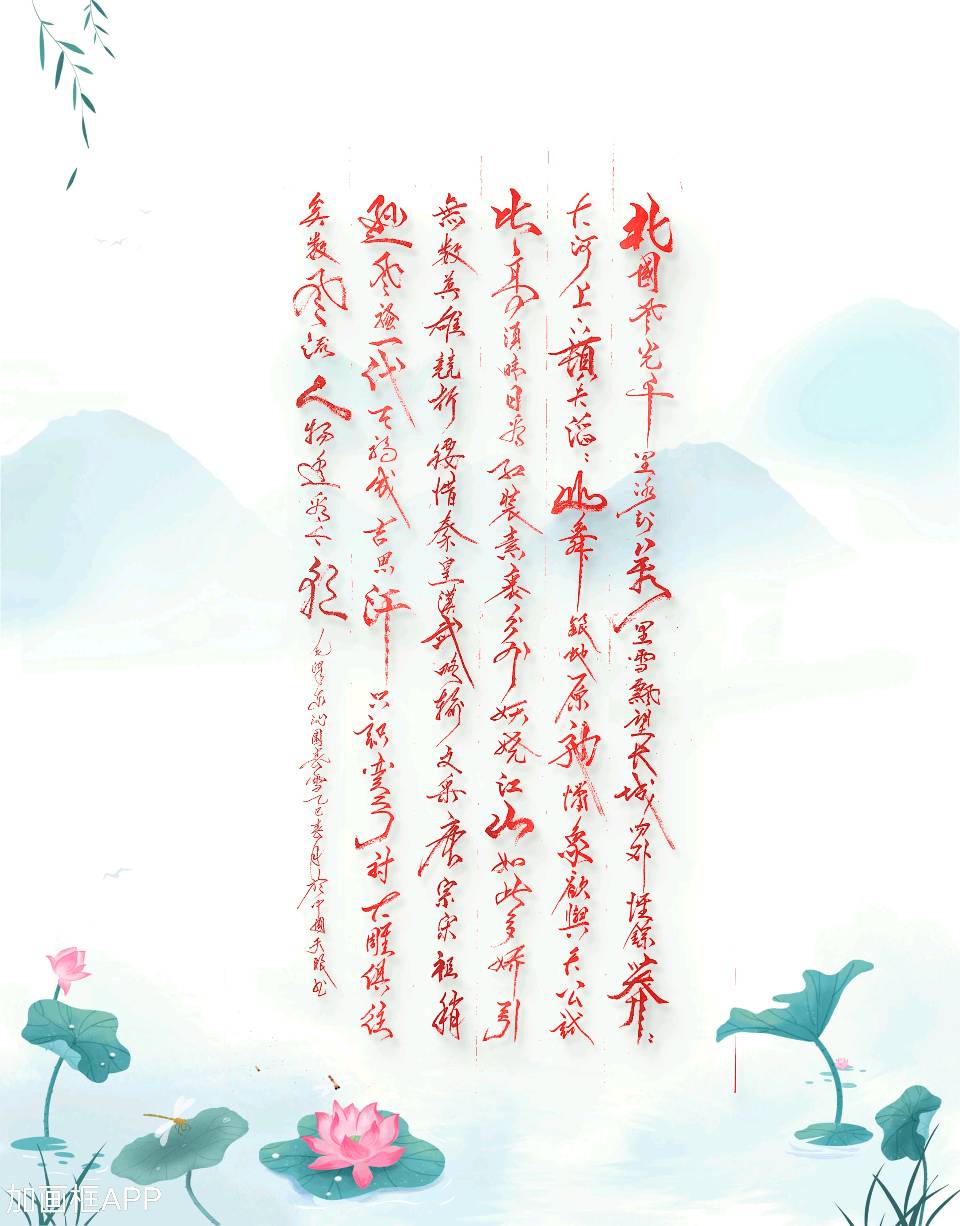 北國风光千里冰封萬里雪飄望长城内外惟餘莽〻
大河上〻頓失滔〻山舞銀蛇原馳蜡象欲與天公試
比〻高须晴日看红装素裹分外妖娆江山如此多娇引
無数英雄競折腰惜秦皇漢武略输文采唐宗宋祖稍
逊风骚一代天骄成吉思汗只識彎弓射大雕俱往
矣数风流人物还看今朝
毛泽东沁園春雪乙巳春月於中國书
加画框APP